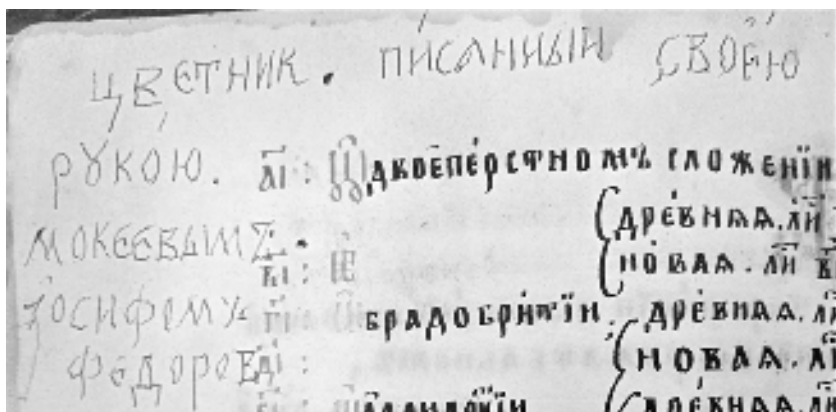 цветник. писанный своею
рукою. а҃і: Ѿ двоепе́рстномъ сложенїи
мокеевымъ. дре́внѧѧ. ли
в҃і: но́ваѧ. ли
іосифомъ г҃і: брадобри́тїи дре́внаѧ. ли
федоров д҃і: но́ваѧ. ли
дре́внаѧ. ли